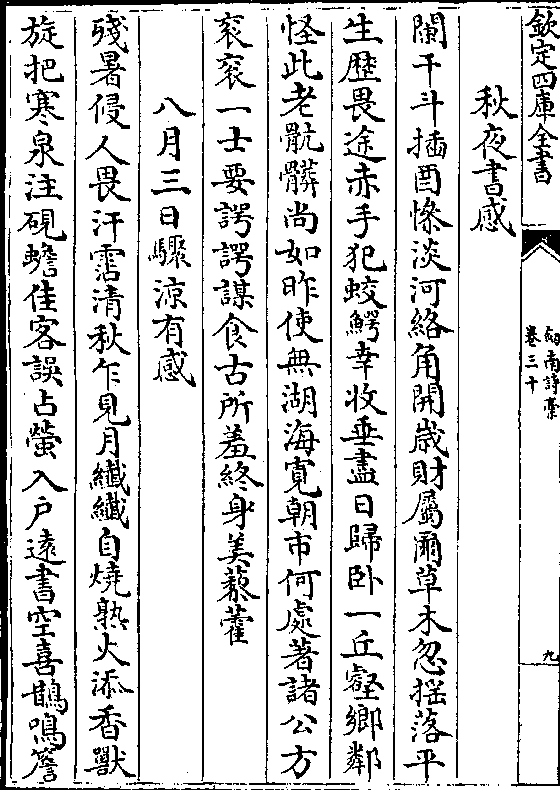 欽定四庫全書
劍南詩稾
卷三十
九
秋夜書感
闌干斗插酉慘淡河絡角開歲財屬爾草木忽揺落平
生歴畏途赤手犯蛟鰐幸收垂盡日歸卧一丘壑鄉鄰
怪此老骯髒尚如昨使無湖海寛朝市何處著諸公方
衮衮一士要諤諤謀食古所羞終身美藜藿
八月三日驟涼有感
殘暑侵人畏汗霑清秋乍見月纎纎自燒熟火添香獸
旋把寒泉注硯蟾佳客誤占螢入户逺書空喜鵲鳴簷